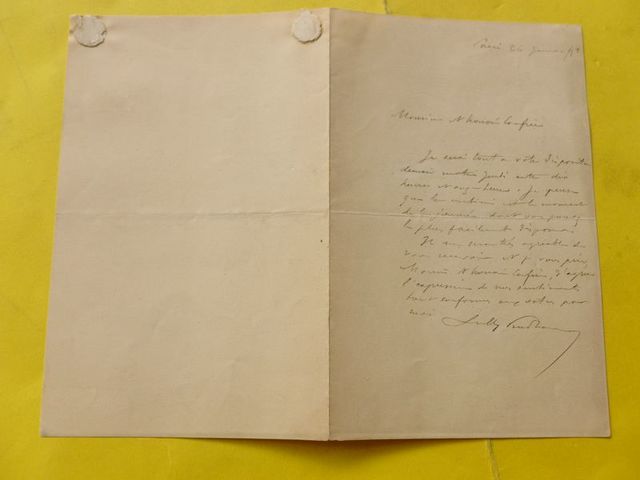 Paris 26 janvier
Monsieur et honoré Confrère
Je serai tout à votre disposition
demain matin jeudi entre dix
heures et onze heures. Je pense
que la matinée est le moment
de la journée dont vous pouvez
le plus facilement disposer.
Il me sera très agréable de
vous recevoir et je vous prie,
Monsieur et honoré Confrère, d'agréer
l'expression de mes sentiments
tout conformes aux vôtres pour
moi
Sully Prudhomme